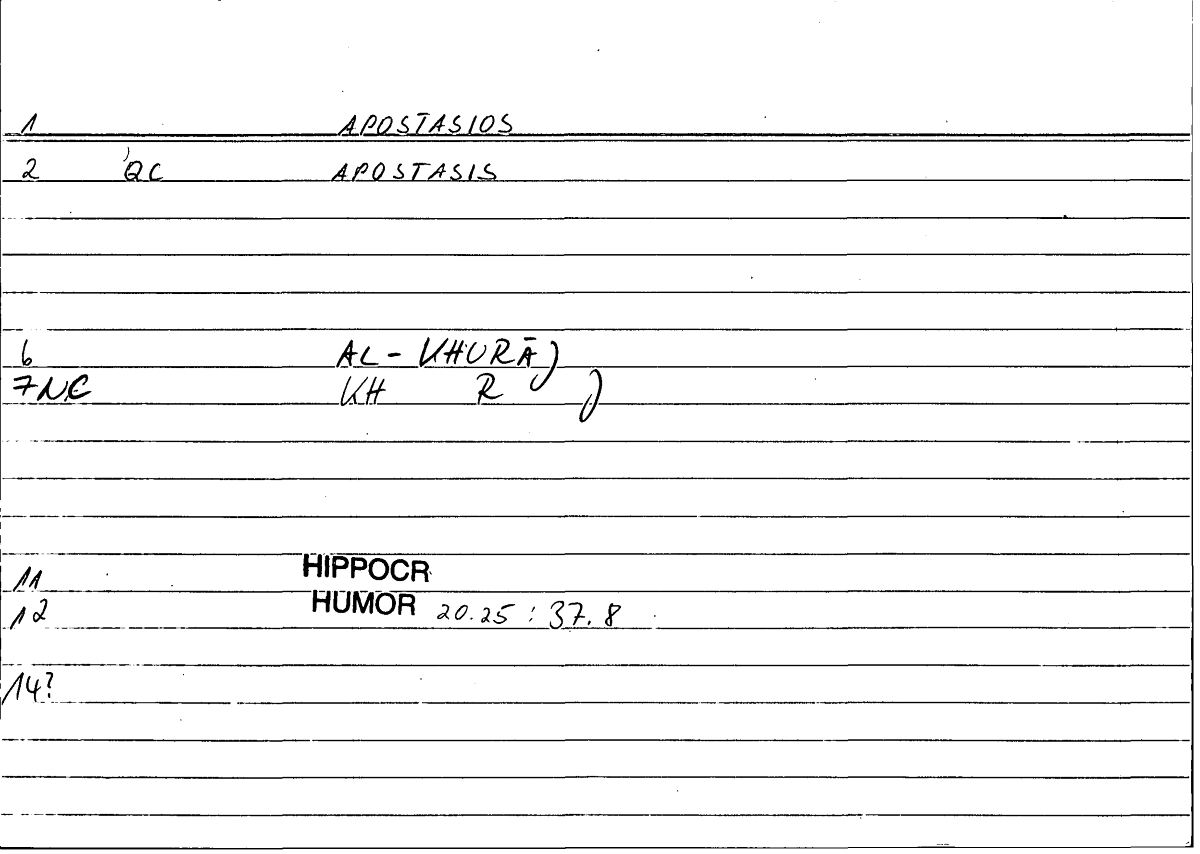 1 APOSTASIOS
2 QC APOSTASIS
6 AL-KHURĀJ
7NC KH R J
11 HIPPOCR
12 HUMOR 20.25 : 37.8
14?